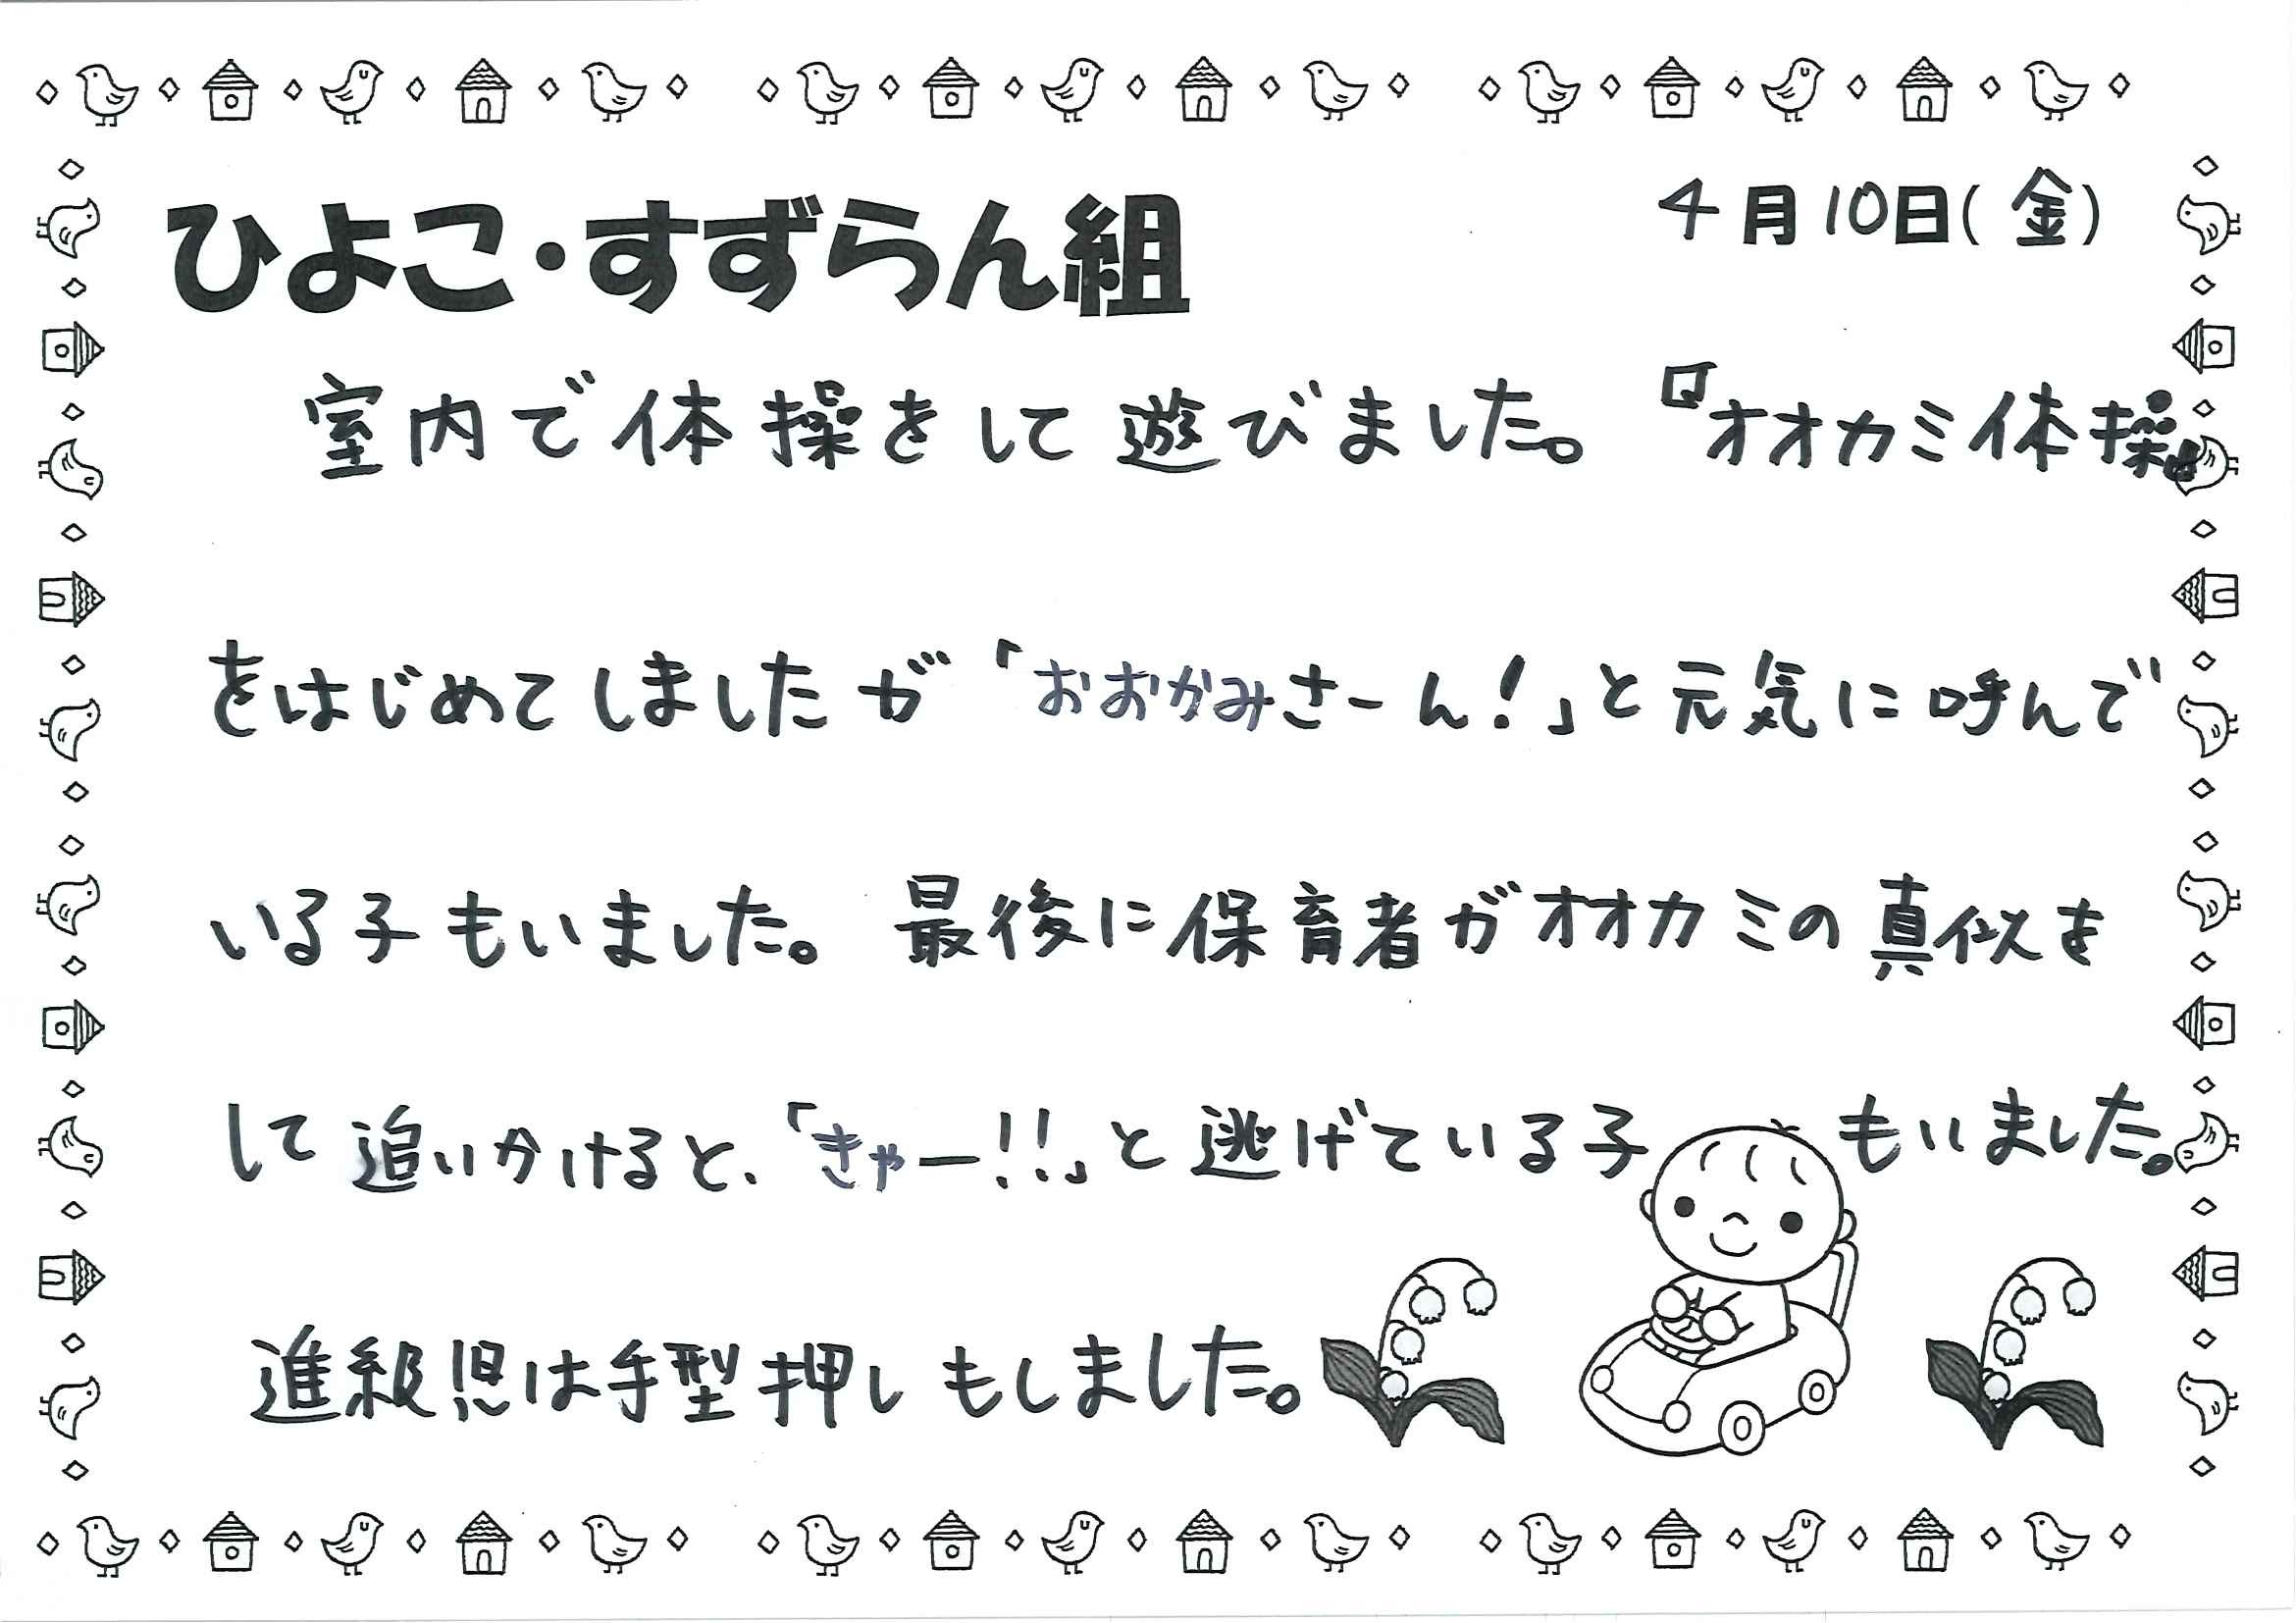 ひよこ・すずらん組
4月10日(金)
室内で体操をして遊びました。『オオカミ体操』
をはじめてしましたが「おおかみさーん!」と元気に呼んで
いる子もいました。最後に保育者がオオカミの真似を
して追いかけると、「きゃー!!」と逃げている子もいました。
進級児は手型押しもしました。